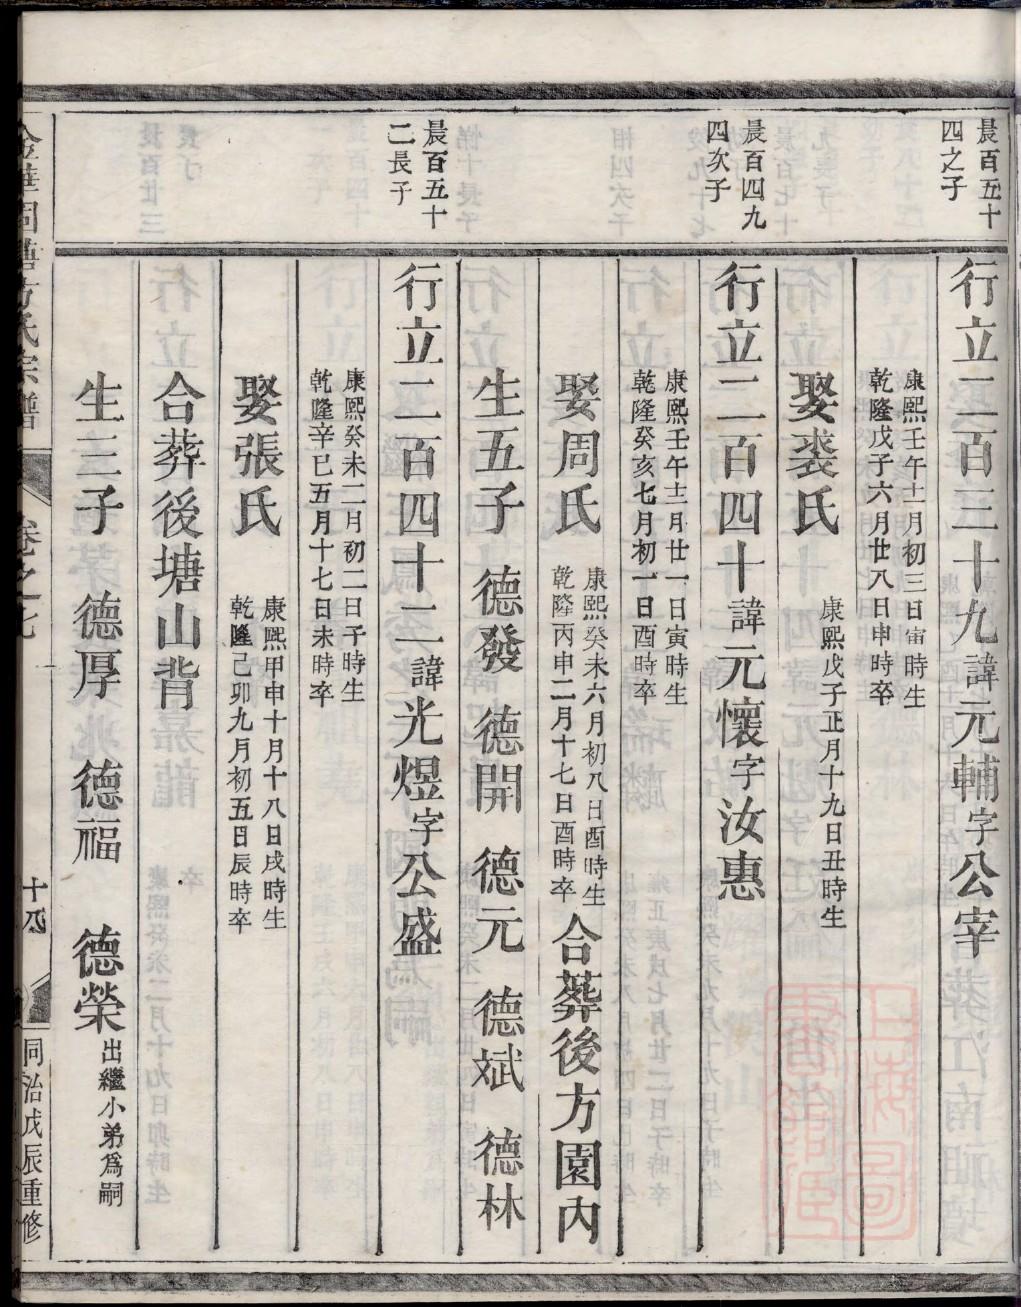 晨百五十
四之子
行立二百三十九諱元輔字公宰
康熙壬午十一月初三日寅時生
乾隆戊子六月廿八日申時卒
娶裘氏
康熙戊子正月十九日丑時生
晨百四九
四次子
行立二百四十諱元懷字汝惠
康熙壬午十二月廿一日寅時生
乾隆癸亥七月初一日酉時卒
娶周氏
康熙癸未六月初八日酉時生
乾隆丙申二月十七日酉時卒
合葬後方園內
生五子 德發 德開 德元 德斌 德林
晨百五十
二長子
行立二百四十二諱光煜字公盛
康熙癸未二月初二日子時生
乾隆辛巳五月十七日未時卒
娶張氏
康熙甲申十月十八日戌時生
乾隆己卯九月初五日辰時卒
合葬後塘山背
生三子 德厚 德福 德榮出繼小弟爲嗣
方氏宗譜
卷之七
同治戊辰重修